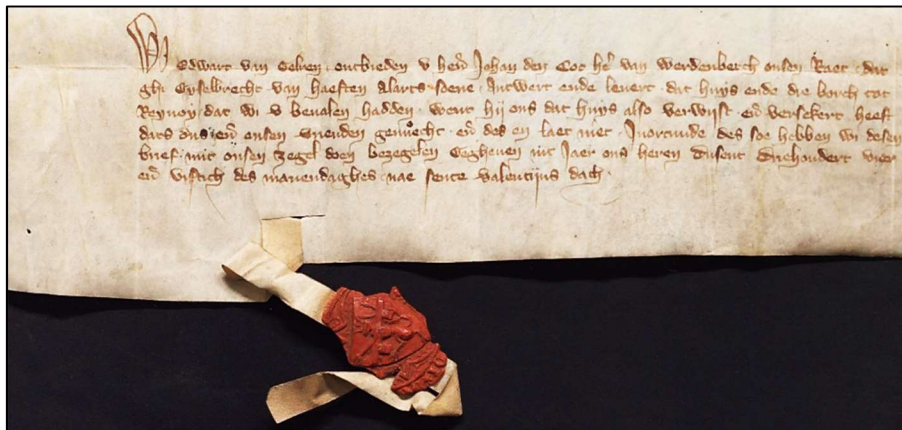 Wi Edwart van Gelren ontbieden v her Johan den Coc her van Werdenberch onsen Raet dat
ghi Gyselbrecht van haeften Alarts soene antwert ende levert dat huys ende die borch tot
Reynoy dat wi v bevalen hadden want hij ons dat huys also verwijst en versekert heeft
dats ons en onsen vrienden genuecht en des en laet niet Inorcunde des soe hebben wi desen
brief mit onsen zegel doen bezegelen Gegheven int Jaer ons heren dusent driehondert vier
en viftich des manendaghes nae sente valentijns dach